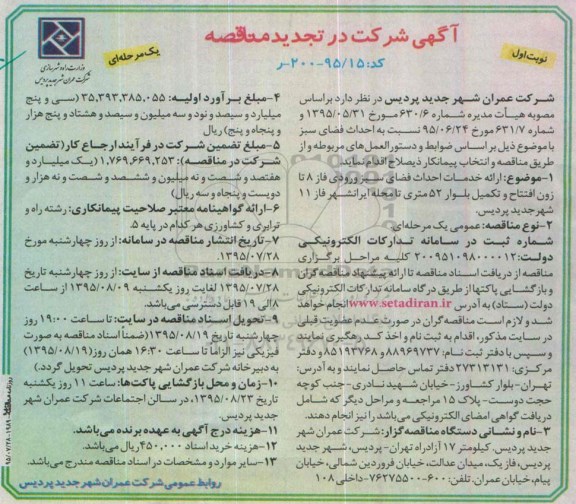 آگهی شرکت در تجدید مناقصه
کد: ۹۵/۱۵-۲۰۰-ر
نوبت اول
یک مرحله‌ای
وزارت راه و شهرسازی
شرکت عمران شهر جدید پردیس
شرکت عمران شهر جدید پردیس در نظر دارد براساس
مصوبه هیأت مدیره شماره ۶۳۰/۶ مورخ ۱۳۹۵/۰۵/۳۱ و
شماره ۶۳۱/۷ مورخ ۹۵/۰۶/۲۴ نسبت به احداث فضای سبز
با موضوع ذیل بر اساس ضوابط و دستورالعمل‌های مربوطه و از
طریق مناقصه و انتخاب پیمانکار ذیصلاح اقدام نماید.
۱-موضوع: ارائه خدمات احداث فضای سبز ورودی فاز ۸ تا
زون افتتاح و تکمیل بلوار ۵۲ متری تا محله ایرانشهر فاز ۱۱
شهر جدید پردیس.
۲-نوع مناقصه: عمومی یک مرحله‌ای
شماره ثبت در سامانه تدارکات الکترونیکی
دولت: ۲۰۰۹۵۱۰۹۸۰۰۰۰۱۲ کلیه مراحل برگزاری
مناقصه از دریافت اسناد مناقصه تا ارائه پیشنهاد مناقصه‌گران
و بازگشایی پاکتها از طریق درگاه سامانه تدارکات الکترونیکی
دولت (ستاد) به آدرس www.setadiran.ir انجام خواهد
شد و لازم است مناقصه‌گران در صورت عدم عضویت قبلی
در سایت مذکور، اقدام به ثبت نام و اخذ کد رهگیری نمایند
و سپس با دفتر ثبت نام: ۸۸۹۶۹۷۳۷ و ۸۵۱۹۳۷۶۸ و دفتر
مرکزی: ۲۷۳۱۳۱۳۱ دفتر تماس حاصل نمایند و به آدرس:
تهران-بلوار کشاورز- خیابان شهید نادری- جنب کوچه
حجت دوست- پلاک ۱۵ مراجعه و مراحل دیگر که شامل
دریافت گواهی امضای الکترونیکی می‌باشد را نیز انجام دهند.
۳-نام و نشانی دستگاه مناقصه گزار: شرکت عمران شهر
جدید پردیس. کیلومتر ۱۷ آزادراه تهران- پردیس، شهر جدید
پردیس، فاز یک، میدان عدالت، خیابان فروردین شمالی، خیابان
پیام، خیابان عمران. تلفن: ۶۰۰-۷۶۲۷۵۵۰۰-داخلی ۱۰۸
۴-مبلغ برآورد اولیه: ۳۵,۳۹۳,۳۸۵,۰۵۵ (سی و پنج
میلیارد و سیصد و نود و سه میلیون و سیصد و هشتاد و پنج هزار
و پنجاه و پنج) ریال
۵-مبلغ تضمین شرکت در فرآیند ارجاع کار (تضمین
شرکت در مناقصه): ۱,۷۶۹,۶۶۹,۲۵۳ (یک میلیارد و
هفتصد و شصت و نه میلیون و ششصد و شصت و نه هزار و
دویست و پنجاه و سه ریال)
۶-ارائه گواهینامه معتبر صلاحیت پیمانکاری: رشته راه و
ترابری و کشاورزی هر کدام در پایه ۵.
۷-تاریخ انتشار مناقصه در سامانه: از روز چهارشنبه مورخ
۱۳۹۵/۰۷/۲۸.
۸-دریافت اسناد مناقصه از سایت: از روز چهارشنبه تاریخ
۱۳۹۵/۰۷/۲۸ لغایت روز یکشنبه ۱۳۹۵/۰۸/۰۹ از ساعت
۸ الی ۱۹ قابل دسترسی می‌باشد.
۹-تحویل اسناد مناقصه در سایت: تا ساعت ۱۹:۰۰ روز
چهارشنبه تاریخ ۱۳۹۵/۰۸/۱۹ (ضمناً اسناد مناقصه به صورت
فیزیکی نیز الزاماً تا ساعت ۱۶:۳۰ همان روز (۱۳۹۵/۰۸/۱۹)
به دبیرخانه شرکت عمران شهر جدید پردیس تحویل گردد.)
۱۰-زمان و محل بازگشایی پاکت‌ها: ساعت ۱۱ روز یکشنبه
تاریخ ۱۳۹۵/۰۸/۲۳، در سالن اجتماعات شرکت عمران شهر
جدید پردیس.
۱۱-هزینه درج آگهی به عهده برنده می‌باشد.
۱۲-هزینه خرید اسناد ۴۵۰,۰۰۰ ریال می‌باشد.
۱۳-سایر موارد و مشخصات در اسناد مناقصه مندرج می‌باشد.
روابط عمومی شرکت عمران شهر جدید پردیس